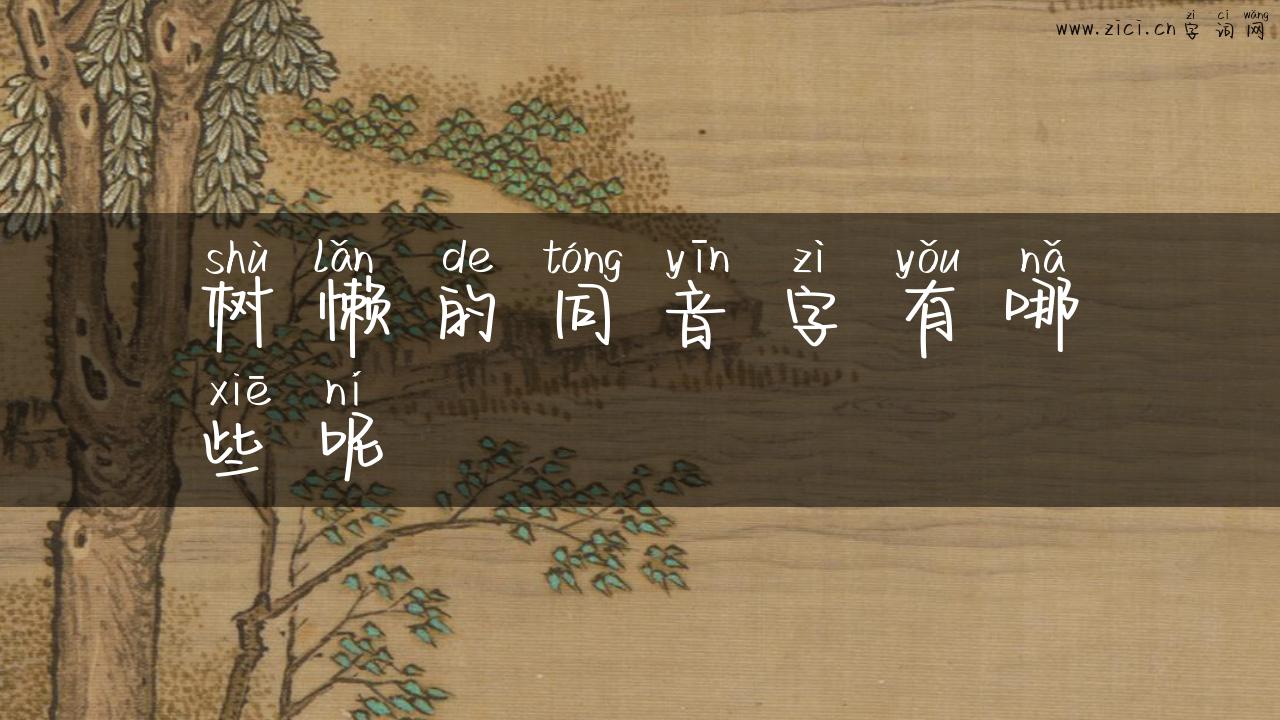 zì cí wǎng
www.zici.cn 字词网
shù lǎn de tóng yīn zì yǒu nǎ
树懒的同音字有哪
xiē ní
些呢